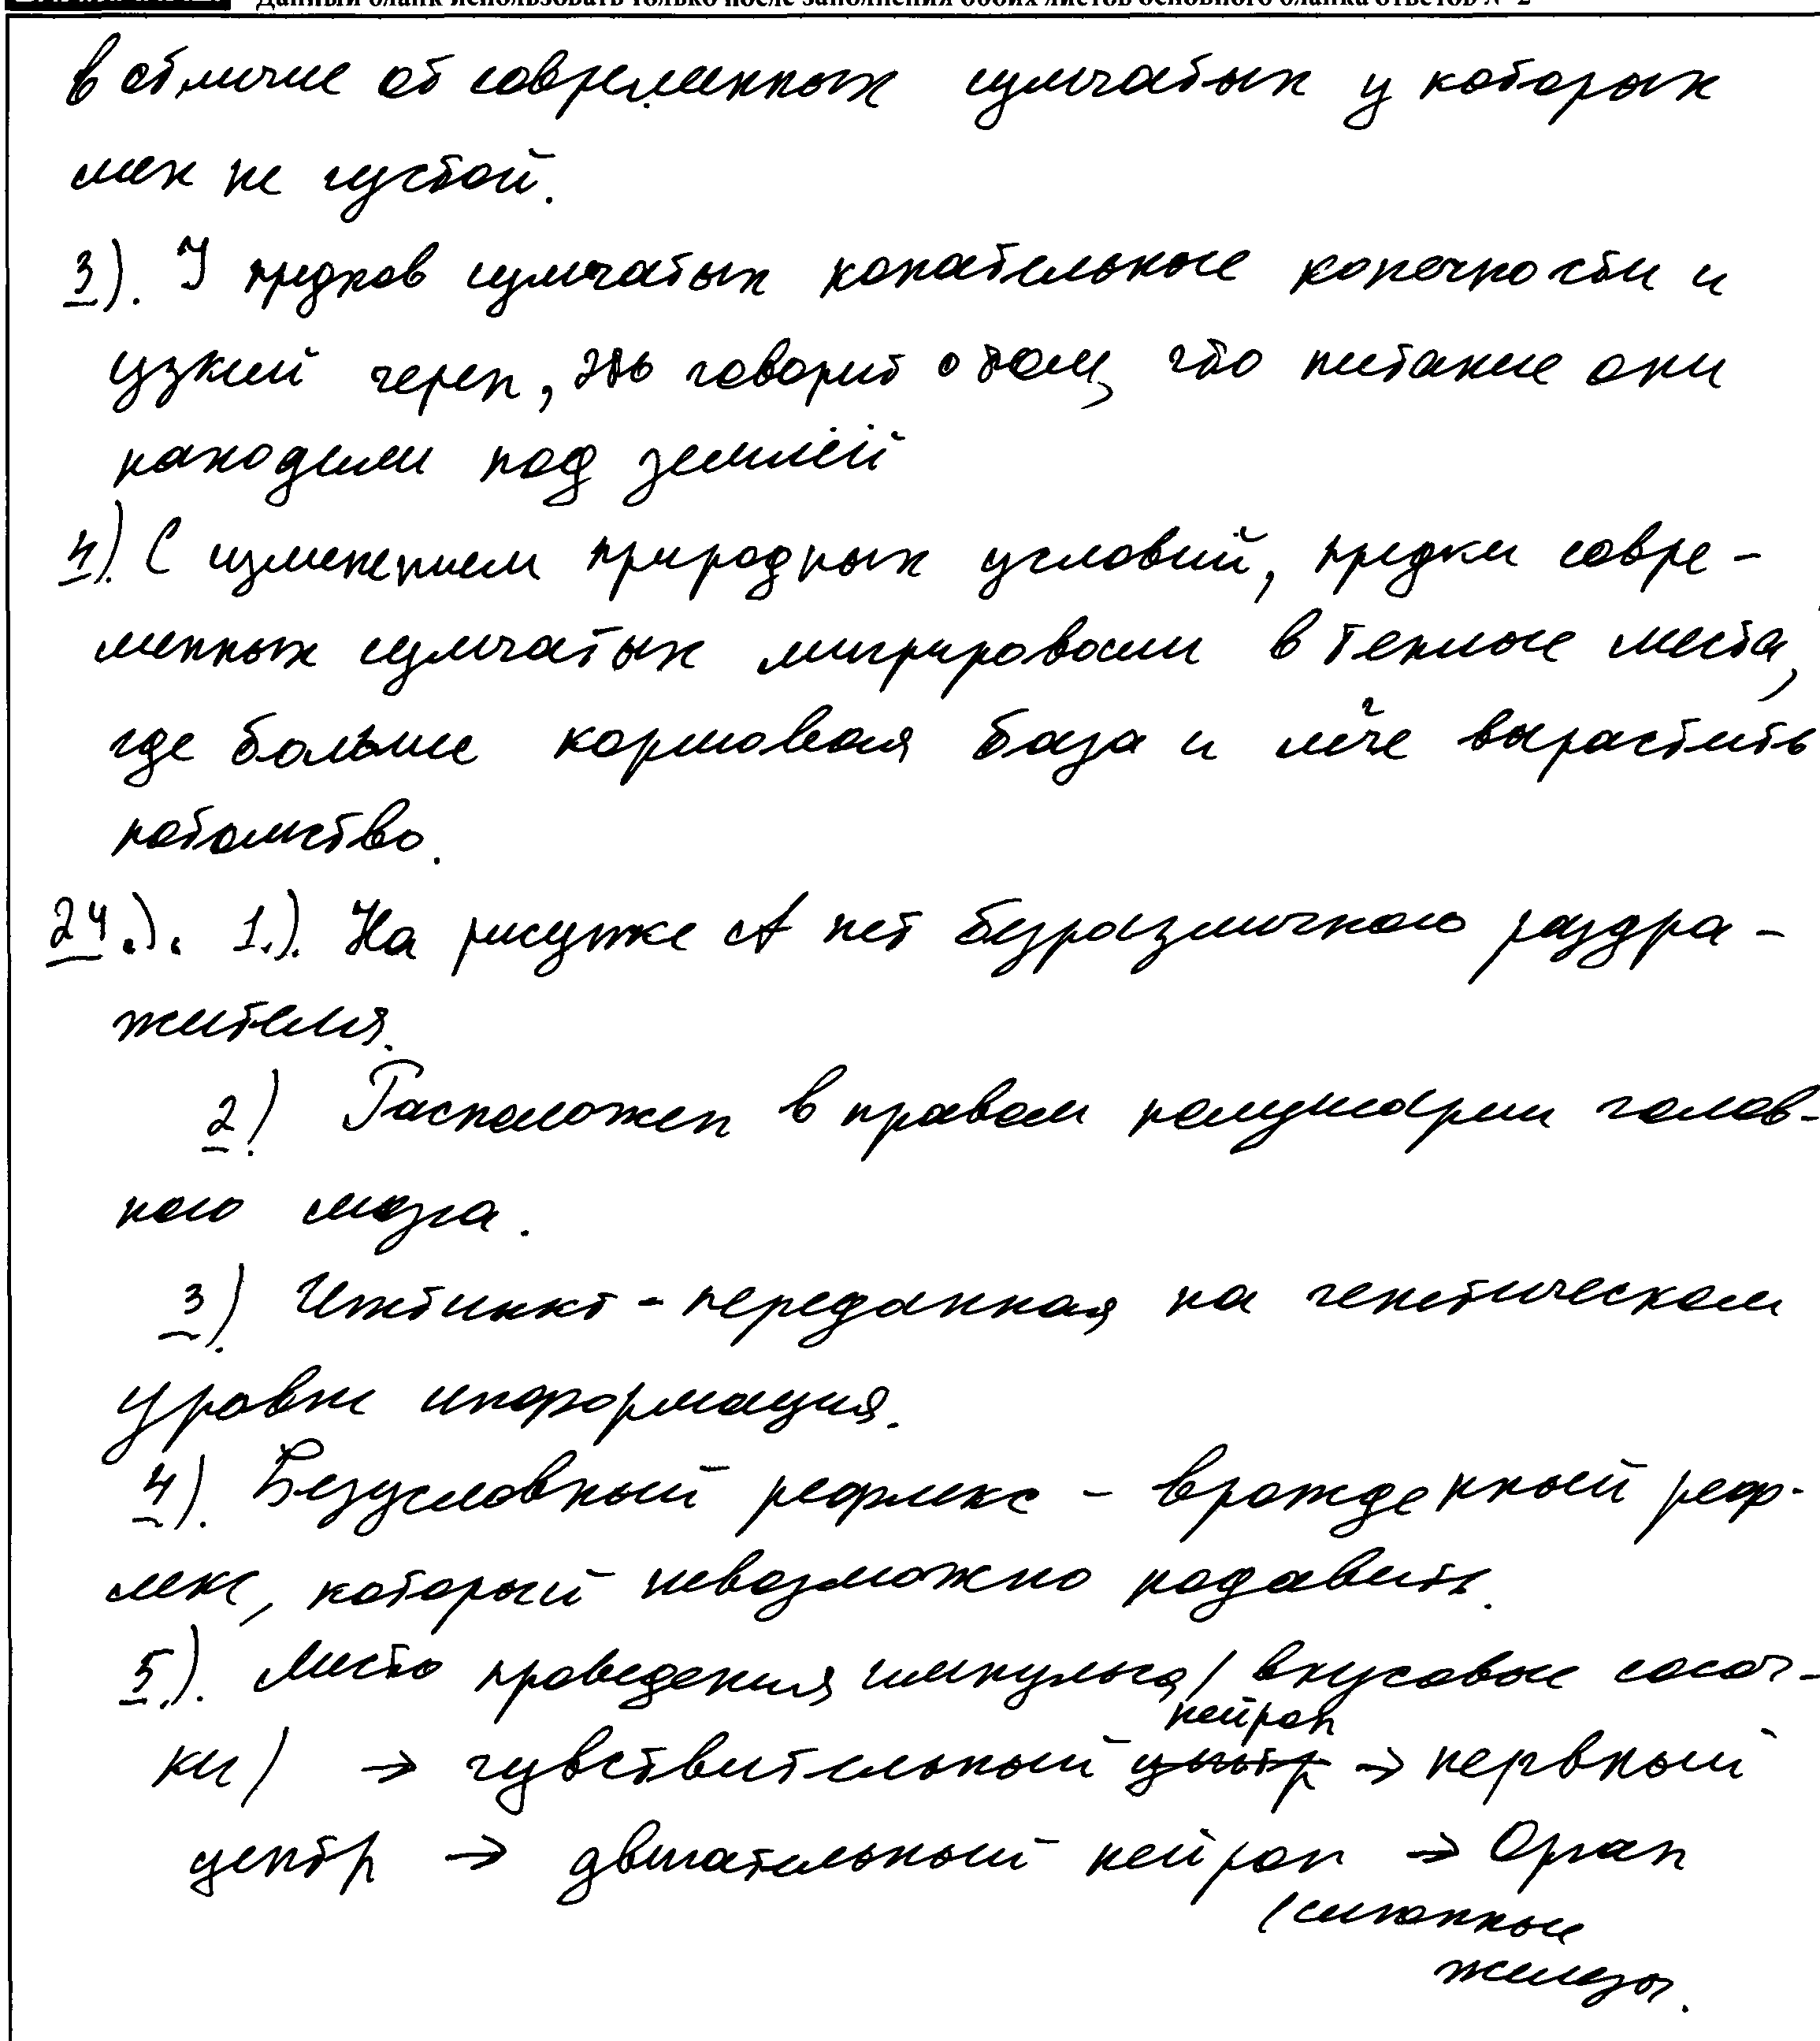 Данный бланк использовать только после заполнения обоих листов основного бланка ответов № 2
в отличие от современных сумчатых у которых
мех не густой.
3). У предков сумчатых копательные конечности и
узкий череп, это говорит о том, что питание они
находили под землёй
4). С изменением природных условий, предки совре-
менных сумчатых мигрировали в теплые места,
где больше кормовая база и легче вырастить
потомство.
24.). 1.). На рисунке А нет безразличного раздра-
жителя.
2) Расположен в правом полушарии голов-
ного мозга.
3) Инстинкт - переданная на генетическом
уровне информация.
4). Безусловный рефлекс - врожденный реф-
лекс, который невозможно подавить.
5.). Место проведения импульса (вкусовые сосоч-
ки) → чувствительный центр нейрон → нервный
центр → двигательный нейрон → Орган
(слюнные
железы.